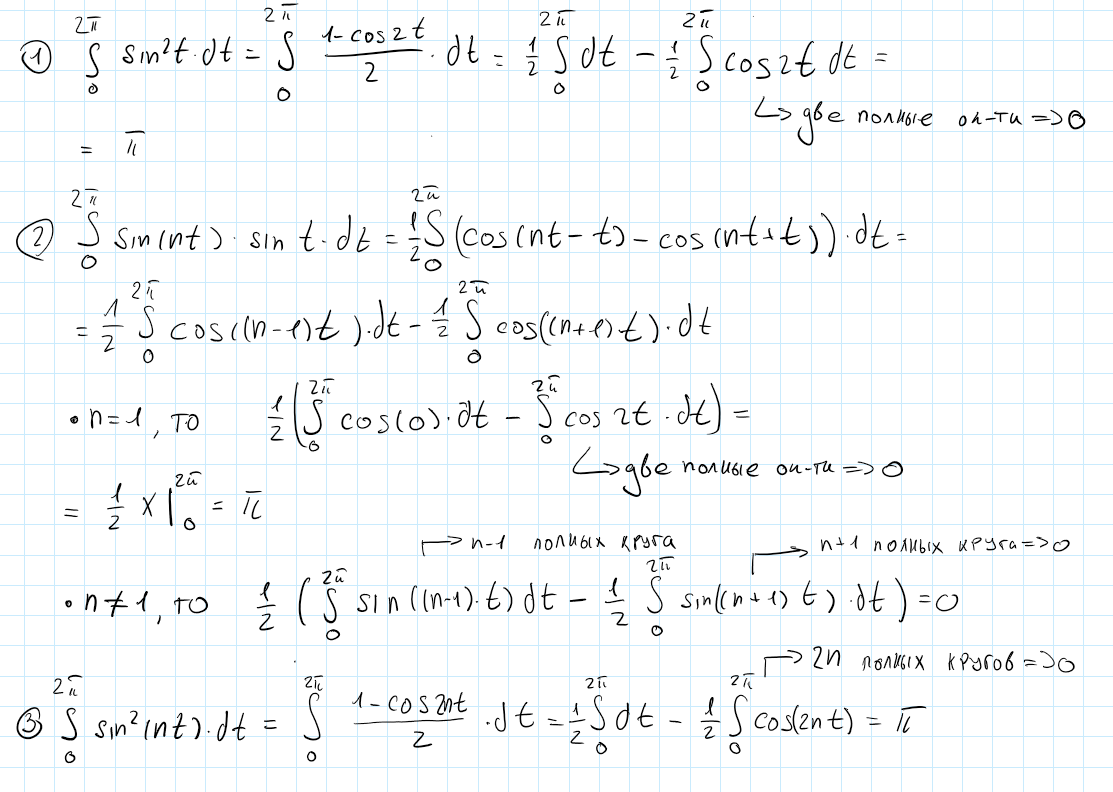 ① ∫₀^{2π} sin²t · dt = ∫₀^{2π} (1-cos2t)/2 · dt = 1/2 ∫₀^{2π} dt - 1/2 ∫₀^{2π} cos2t dt =
↳ две полные ок-ти => 0
= π
② ∫₀^{2π} sin(nt) · sin t · dt = 1/2 ∫₀^{2π} (cos(nt-t) - cos(nt+t)) · dt =
= 1/2 ∫₀^{2π} cos((n-1)t) · dt - 1/2 ∫₀^{2π} cos((n+1)t) · dt
• n=1, то 1/2 (∫₀^{2π} cos(0) · dt - ∫₀^{2π} cos2t · dt) =
↳ две полные ок-ти => 0
= 1/2 x |₀^{2π} = π
↱ n-1 полных круга ↱ n+1 полных круга => 0
• n≠1, то 1/2 (∫₀^{2π} sin((n-1)·t) dt - 1/2 ∫₀^{2π} sin((n+1) t) · dt) = 0
↱ 2n полных кругов => 0
③ ∫₀^{2π} sin²(nt) · dt = ∫₀^{2π} (1-cos2nt)/2 · dt = 1/2 ∫₀^{2π} dt - 1/2 ∫₀^{2π} cos(2nt) = π